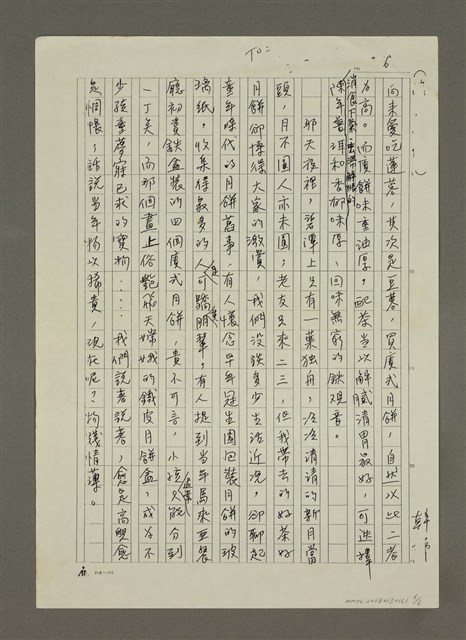 TO:
6
向來愛吃蓮蓉，其次是豆蓉，買廣式月餅，自然以此二者
為高。而廣餅味重油厚，配茶當以解膩清胃最好，可選擇
消食下氣
陳年普洱和香郁味厚、回味無窮的鉄觀音。
那天夜裡，碧潭上只有一葉独舟，冷冷清清的新月當
頭，月不圓人亦未圓；老友只來二三，但我帶去的好茶好
月餅卻博得大家的激賞，我們沒談多少生活近況，卻聊起
童年時代的月餅舊事。有人懷念早年冠生園包裝月餅的玻
璃紙，收集得最多的人可驕朋輩，有人提到當年馬來亞裝
廳初賣鉄盒裝的四個廣式月餅，貴不可言，小孩只能分到
一丁矣，而那個畫上俗艷飛天嫦娥的鐵皮月餅盒，成為不
少孩童夢寐已求的寶物....我們說著說著，愈是高興愈
是惆悵，話說當年物以稀貴，現在呢？物賤情薄。